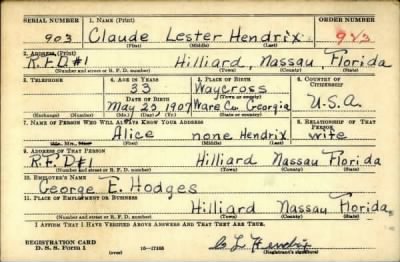 SERIAL NUMBER 1. NAME (Print) ORDER NUMBER
903 Claude Lester Hendrix 983
(First) (Middle) (Last)
2. ADDRESS (Print)
R.F.D #1 Hilliard, Nassau, Florida
(Number and street or R. F. D. number) (Town) (County) (State)
3. TELEPHONE 4. AGE IN YEARS 5. PLACE OF BIRTH 6. COUNTRY OF CITIZENSHIP
33 Waycross
DATE OF BIRTH (Town or county)
May 23, 1907 Ware Co. Georgia U.S.A.
(Exchange) (Number) (Mo.) (Day) (Yr.) (State or country)
7. NAME OF PERSON WHO WILL ALWAYS KNOW YOUR ADDRESS 8. RELATIONSHIP OF THAT PERSON
Alice none Hendrix wife
(First) (Middle) (Last)
9. ADDRESS OF THAT PERSON
R.F.D #1 Hilliard Nassau Florida
(Number and street or R. F. D. number) (Town) (County) (State)
10. EMPLOYER'S NAME
George E. Hodges
11. PLACE OF EMPLOYMENT OR BUSINESS
Hilliard Nassau Florida
(Number and street or R. F. D. number) (Town) (County) (State)
I AFFIRM THAT I HAVE VERIFIED ABOVE ANSWERS AND THAT THEY ARE TRUE.
REGISTRATION CARD
D. S. S. Form 1 (over) C L Hendrix
(Registrant's signature)